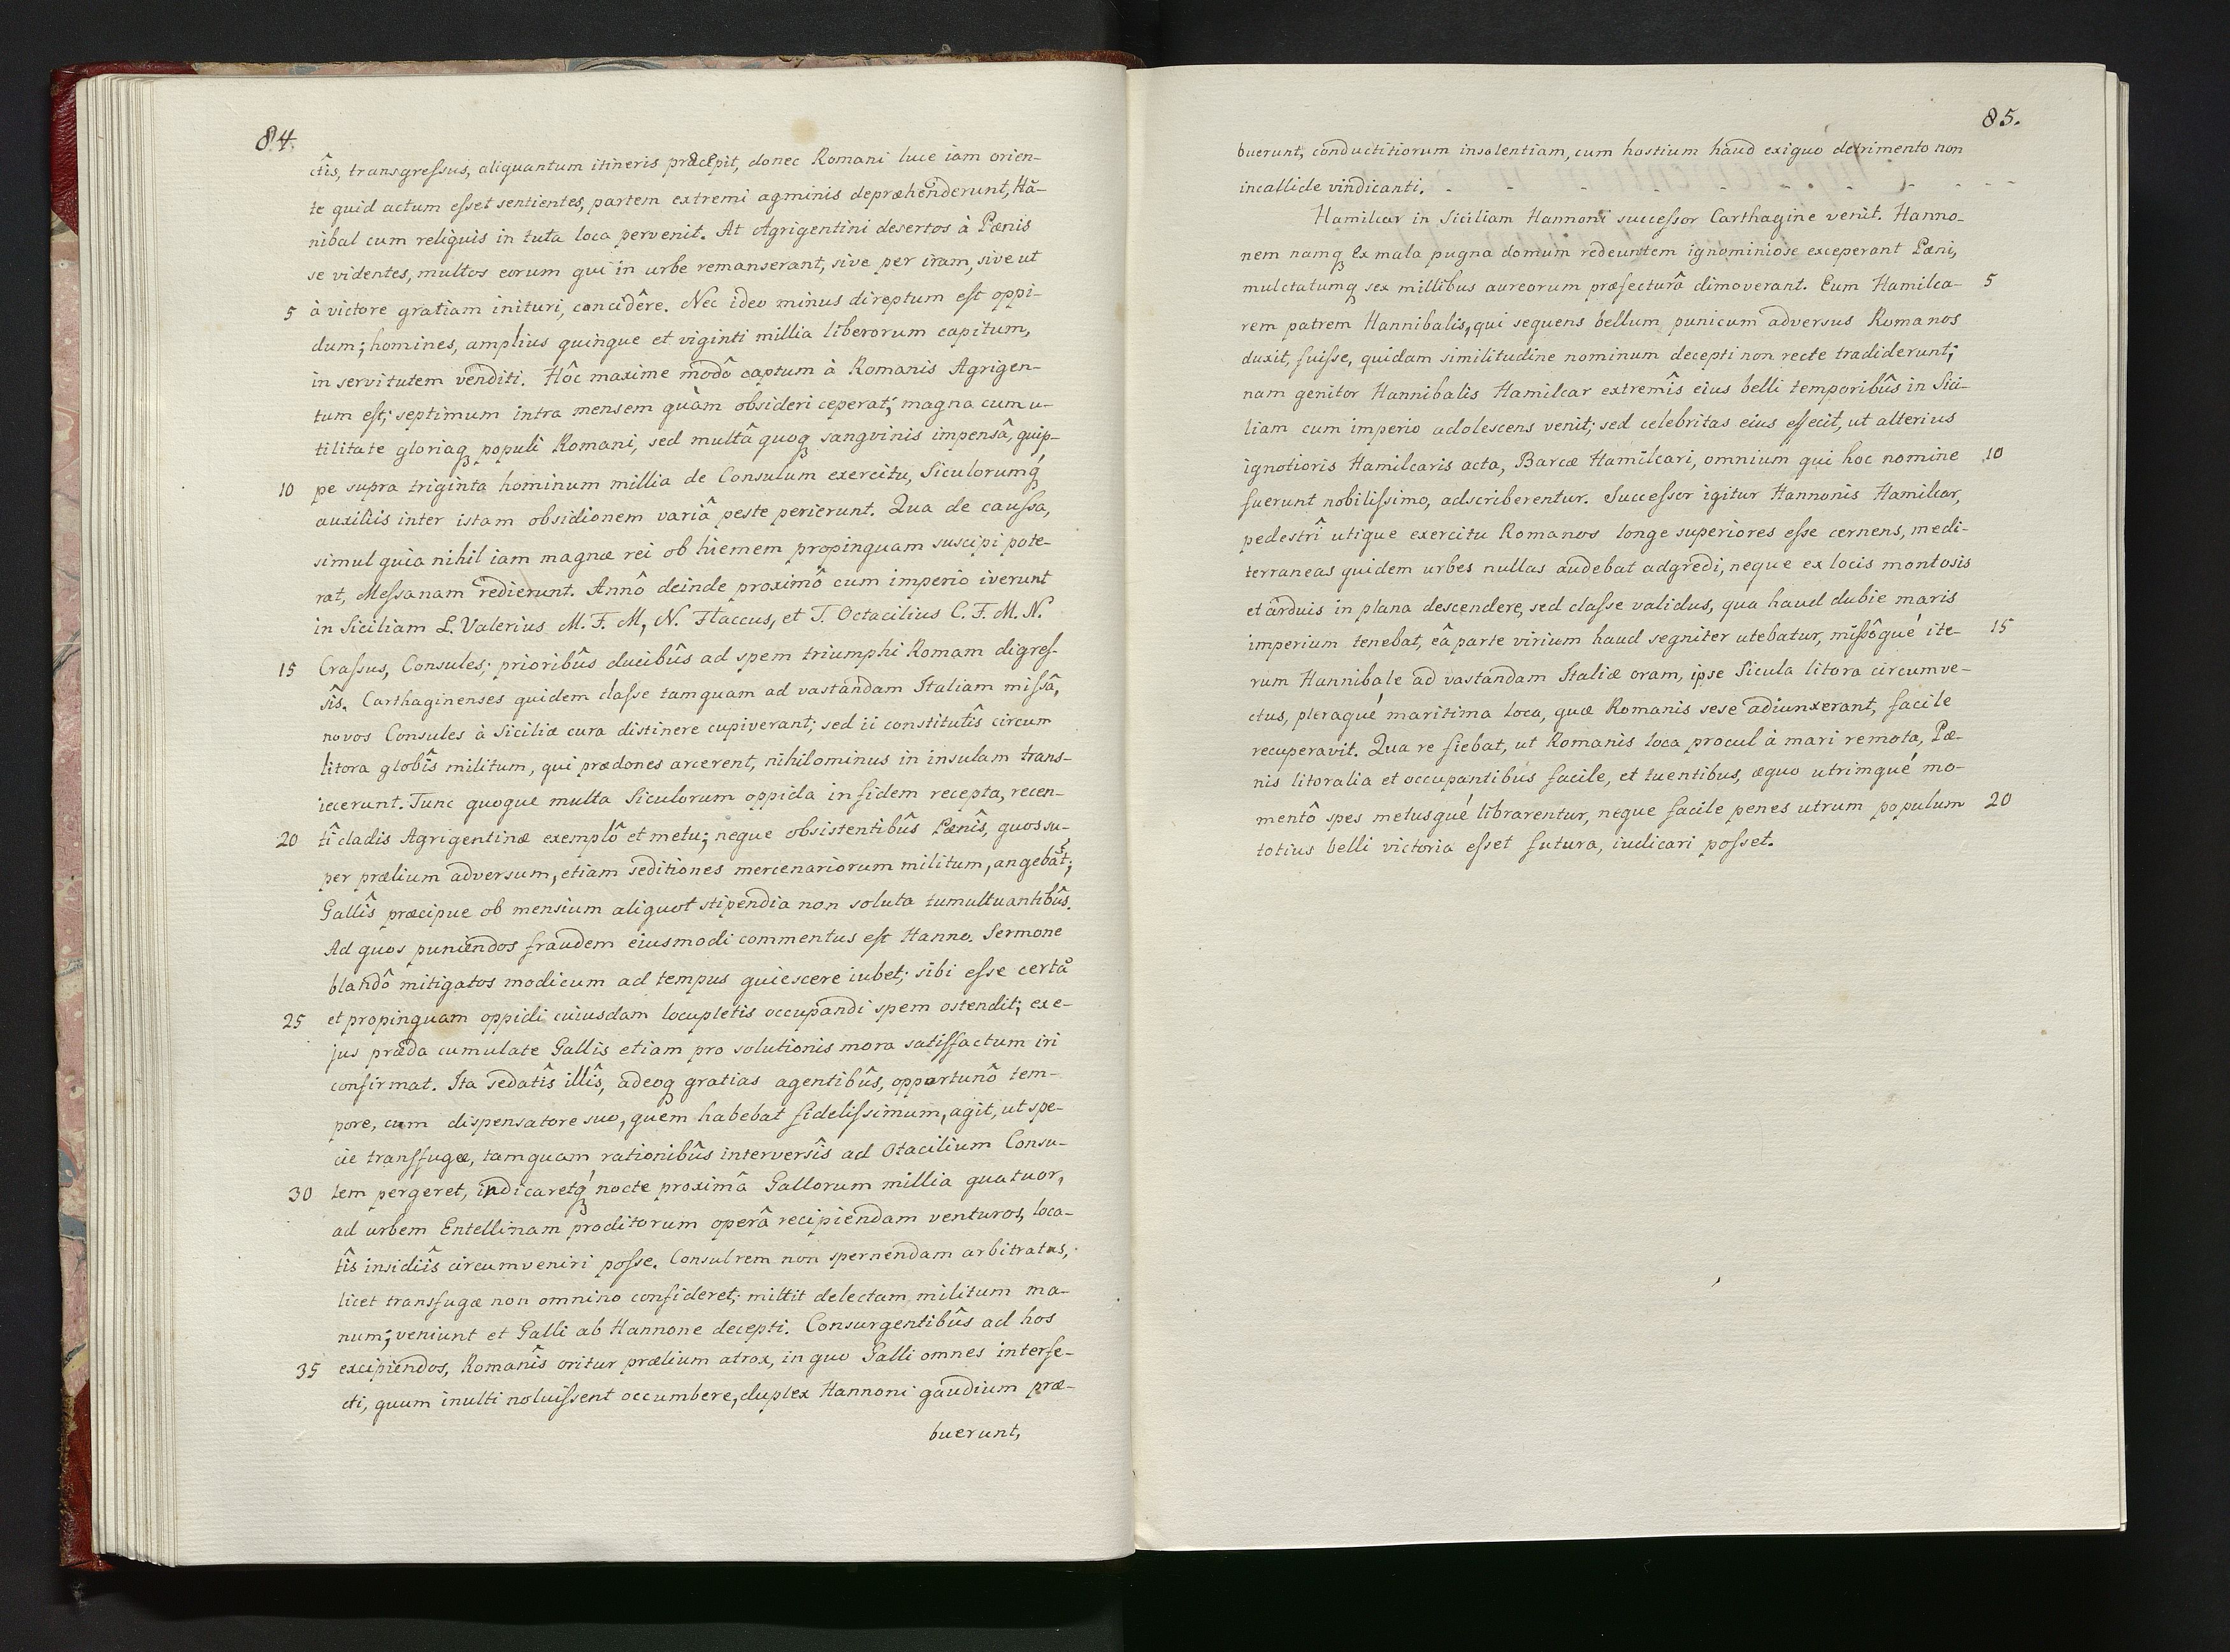 84.
ctîs, transgressus, aliquantum itineris præcepit, donec Romani luce iam orien-
te quid actum esset sentientes, partem extremi agminis depræhenderunt, Hā-
nibal cum reliquis in tuta loca pervenit. At Agrigentini desertos à Pœnis
se videntes, multos eorum qui in urbe remanserant, sive per iram, sive ut
5 à victore gratiam inituri, concidêre. Nec ideo minus direptum est oppi-
dum; homines, amplius quinque et viginti millia liberorum capitum,
in servitutem venditi. Hôc maxime modô captum à Romanis Agrigen-
tum est; septimum intra mensem quàm obsideri ceperat; magna cum u-
tilitate gloriaq; populi Romani, sed multâ quoq; sangvinis impensâ, quip-
10 pe supra triginta hominum millia de Consulum exercitu, Siculorumq́;
auxiliis inter istam obsidionem variâ peste perierunt. Qua de caussa,
simul quia nihil iam magnæ rei ob hiemem propinquam suscipi pote-
rat, Messanam redierunt. Annô deinde proximô cum imperio iverunt
in Siciliam L. Valerius M. F. M, N. Flaccus, et T. Octacilius C. F. M. N.
15 Crassus, Consules; prioribûs ducibûs ad spem triumphi Romam digres-
sîs. Carthaginenses quidem classe tamquam ad vastandam Italiam missâ,
novos Consules à Siciliæ cura distinere cupiverant; sed ii constitutîs circum
litora globîs militum, qui prædones arcerent, nihilominus in insulam trans-
iecerunt. Tunc quoque multa Siculorum oppida in fidem recepta, recen-
20 tî cladis Agrigentinæ exemplô et metu; neque obsistentibûs Pœnîs, quos su-
per prælium adversum, etiam seditiones mercenariorum militum, angebāt;
Gallîs præcipue ob mensium aliquot stipendia non soluta tumultuantibûs.
Ad quos puniendos fraudem eiusmodi commentus est Hanno. Sermone
blandô mitigatos modicum ad tempus quiescere iubet; sibi esse certā
25 et propinquam oppidi cuiusdam locupletis occupandi spem ostendit; ex e-
jus præda cumulate Gallis etiam pro solutionis mora satisfactum iri
confirmat. Ita sedatîs illîs, adeoq; gratias agentibûs, opportunô tem-
pore, cum dispensatore suo, quem habebat fidelissimum, agit, ut spe-
cie transfugæ, tamquam rationibûs interversîs ad Otacilium Consu-
30 lem pergeret, indicaretq́; nocte proximâ Gallorum millia quatuor,
ad urbem Entellinam proditorum operâ recipiendam venturos, loca-
tîs insidiîs circumveniri posse. Consul rem non spernendam arbitratus,
licet transfugæ non omnino confideret; mittit delectam militum ma-
num; veniunt et Galli ab Hannone decepti. Consurgentibûs ad hos
35 excipiendos, Romanîs oritur prælium atrox, in quo Galli omnes interfe-
cti, quum inulti noluissent occumbere, duplex Hannoni gaudium præ-
buerunt,
85.
buerunt, conductitiorum insolentiam, cum hostium haud exiguo detrimento non
incallide vindicanti. - - - - - - - - - - -
Hamilcar in Siciliam Hannoni successor Carthagine venit. Hanno-
nem namq; ex mala pugna domum redeuntem ignominiose exceperant Pœni,
mulctatumq; sex millibus aureorum præfecturâ dimoverant. Eum Hamilca- 5
rem patrem Hannibalis, qui sequens bellum punicum adversus Romanos
duxit, fuisse, quidam similitudine nominum decepti non recte tradiderunt;
nam genitor Hannibalis Hamilcar extremîs eius belli temporibûs in Sici-
liam cum imperio adolescens venit; sed celebritas eius effecit, ut alterius
ignotioris Hamilcaris acta, Barcæ Hamilcari, omnium qui hoc nomine 10
fuerunt nobilissimo, adscriberentur. Successor igitur Hannonis Hamilcar,
pedestrî utique exercitu Romanos longe superiores esse cernens, medi-
terraneas quidem urbes nullas audebat adgredi, neque ex locis montosis
et arduis in plana descendere, sed classe validus, qua haud dubie maris
imperium tenebat, eâ parte virium haud segniter utebatur, missôqué ite- 15
rum Hannibale ad vastandam Italiæ oram, ipse Sicula litora circumve-
ctus, pleraqué maritima loca, quæ Romanis sese adiunxerant, facile
recuperavit. Qua re fiebat, ut Romanis loca procul à mari remota, Pœ-
nis litoralia et occupantibus facile, et tuentibus, æquo utrimqué mo-
mentô spes metusqué librarentur, neque facile penes utrum populum 20
totius belli victoria esset futura, iudicari posset.